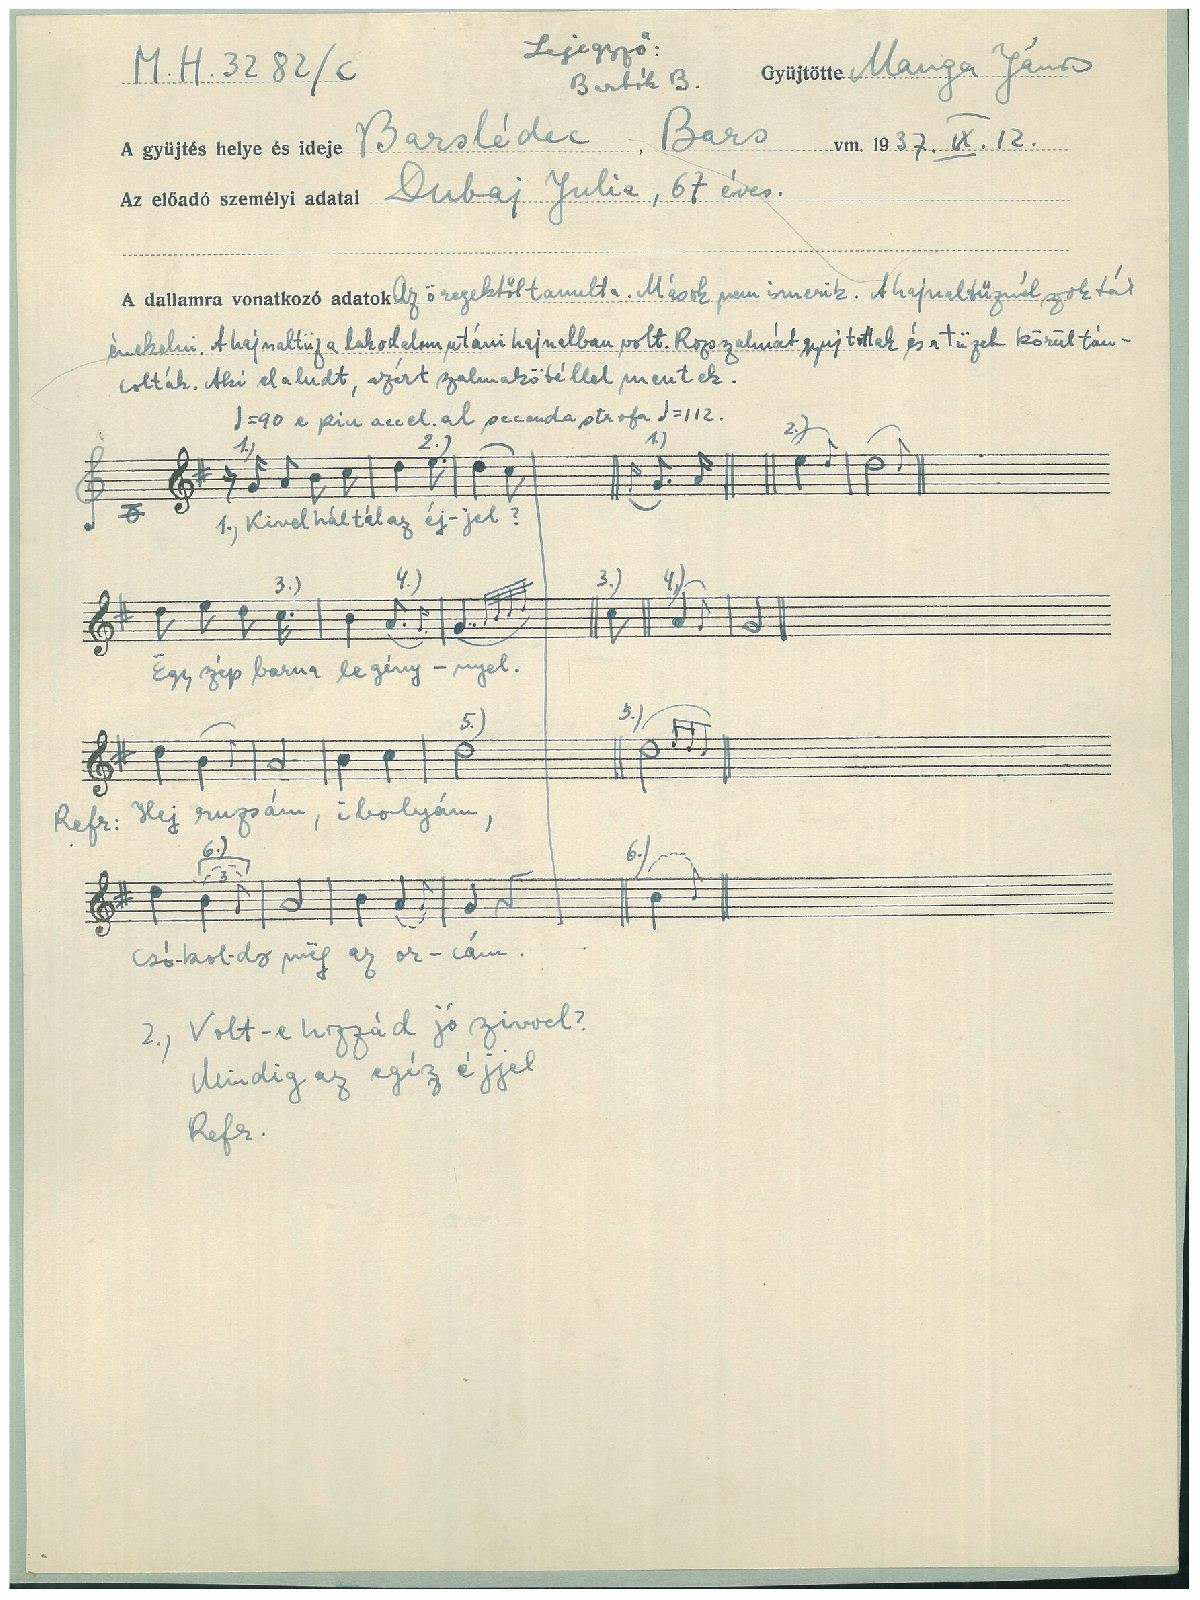 M.H. 3282/c
Lejegyző:
Bartók B.
Gyüjtötte Manga János
A gyüjtés helye és ideje Barslédec, Bars vm. 1937. IX. 12.
Az előadó személyi adatai Dubaj Julia, 67 éves.
A dallamra vonatkozó adatok Az öregektől tanulta. Mások nem ismerik. A hajnaltűznél szokták
énekelni. A hajnaltűz a lakodalom utáni hajnalban volt. Rozsszalmát gyujtottak és a tüzek körül tán-
colták. Aki elaludt, azért szalmakötéllel mentek.
♩=90 e piu accel. al seconda strofa ♩=112.
1.) 2.) 1.) 2.)
1., Kivel háltál az éj-jel?
3.) 4.) 3.) 4.)
Egy szép barna legény-nyel.
5.) 5.)
Refr: Hej ruzsám, ibolyám,
6.) 3 6.)
Csó-kol-ds mëg az or-cám.
2., Volt-e hozzád jó szivvel?
Mindig az egész éjjel
Refr.